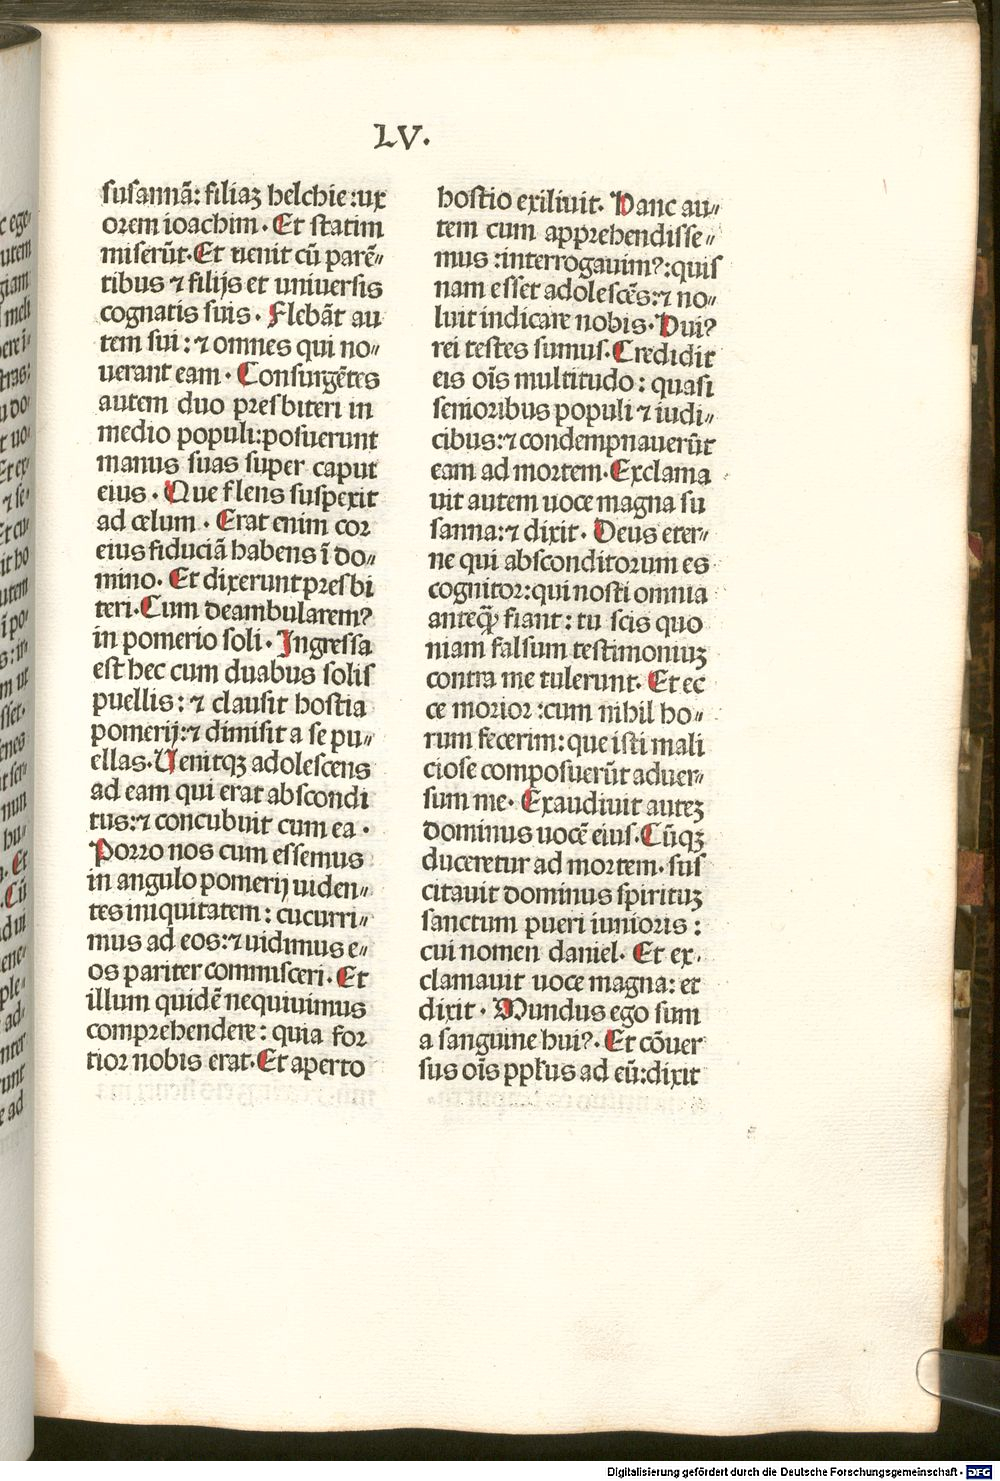 LV.
susannã: filiaȝ helchie: ux
orem ioachim. Et statim
miserũt. Et uenit cũ parẽ〃
tibus ⁊ filijs et uniuersis
cognatis suis. Flebãt au
tem sui: ⁊ omnes qui no〃
uerant eam. Consurgẽtes
autem duo presbiteri in
medio populi: posuerunt
manus suas super caput
eius. Que flens suspexit
ad celum. Erat enim cor
eius fiduciã habens ĩ do〃
mino. Et dixerunt presbi
teri. Cum deambularem?
in pomerio soli. Ingressa
est hec cum duabus solis
puellis: ⁊ clausit hostia
pomerij: ⁊ dimisit a se pu〃
ellas. Uenitqȝ adolescens
ad eam qui erat abscondi
tus: ⁊ concubuit cum ea.
Porro nos cum essemus
in angulo pomerij uiden〃
tes iniquitatem: cucurri〃
mus ad eos: ⁊ uidimus e〃
os pariter commisceri. Et
illum quidẽ nequiuimus
comprehendere: quia for
tior nobis erat. Et aperto
hostio exiliuit. Hanc au〃
tem cum apprehendisse〃
mus: interrogauim?: quis
nam esset adolescẽs: ⁊ no〃
luit indicare nobis. Hui?
rei testes sumus. Credidit
eis oĩs multitudo: quasi
senioribus populi ⁊ iudi〃
cibus: ⁊ condempnauerũt
eam ad mortem. Exclama
uit autem uoce magna su
sanna: ⁊ dixit. Deus eter〃
ne qui absconditorum es
cognitor: qui nosti omnia
anteꝙ̃ fiant: tu scis quo
niam falsum testimoniuȝ
contra me tulerunt. Et ec
ce morior: cum nihil ho〃
rum fecerim: que isti mali
ciose composuerũt aduer〃
sum me. Exaudiuit auteȝ
dominus uocẽ eius. Cũqȝ
duceretur ad mortem. sus
citauit dominus spirituȝ
sanctum pueri iunioris:
cui nomen daniel. Et ex.
clamauit uoce magna: et
dixit. Mundus ego sum
a sanguine hui?. Et cõuer
sus oĩs pplus ad eũ: dixit
Digitalisierung gefördert durch die Deutsche Forschungsgemeinschaft - DFG